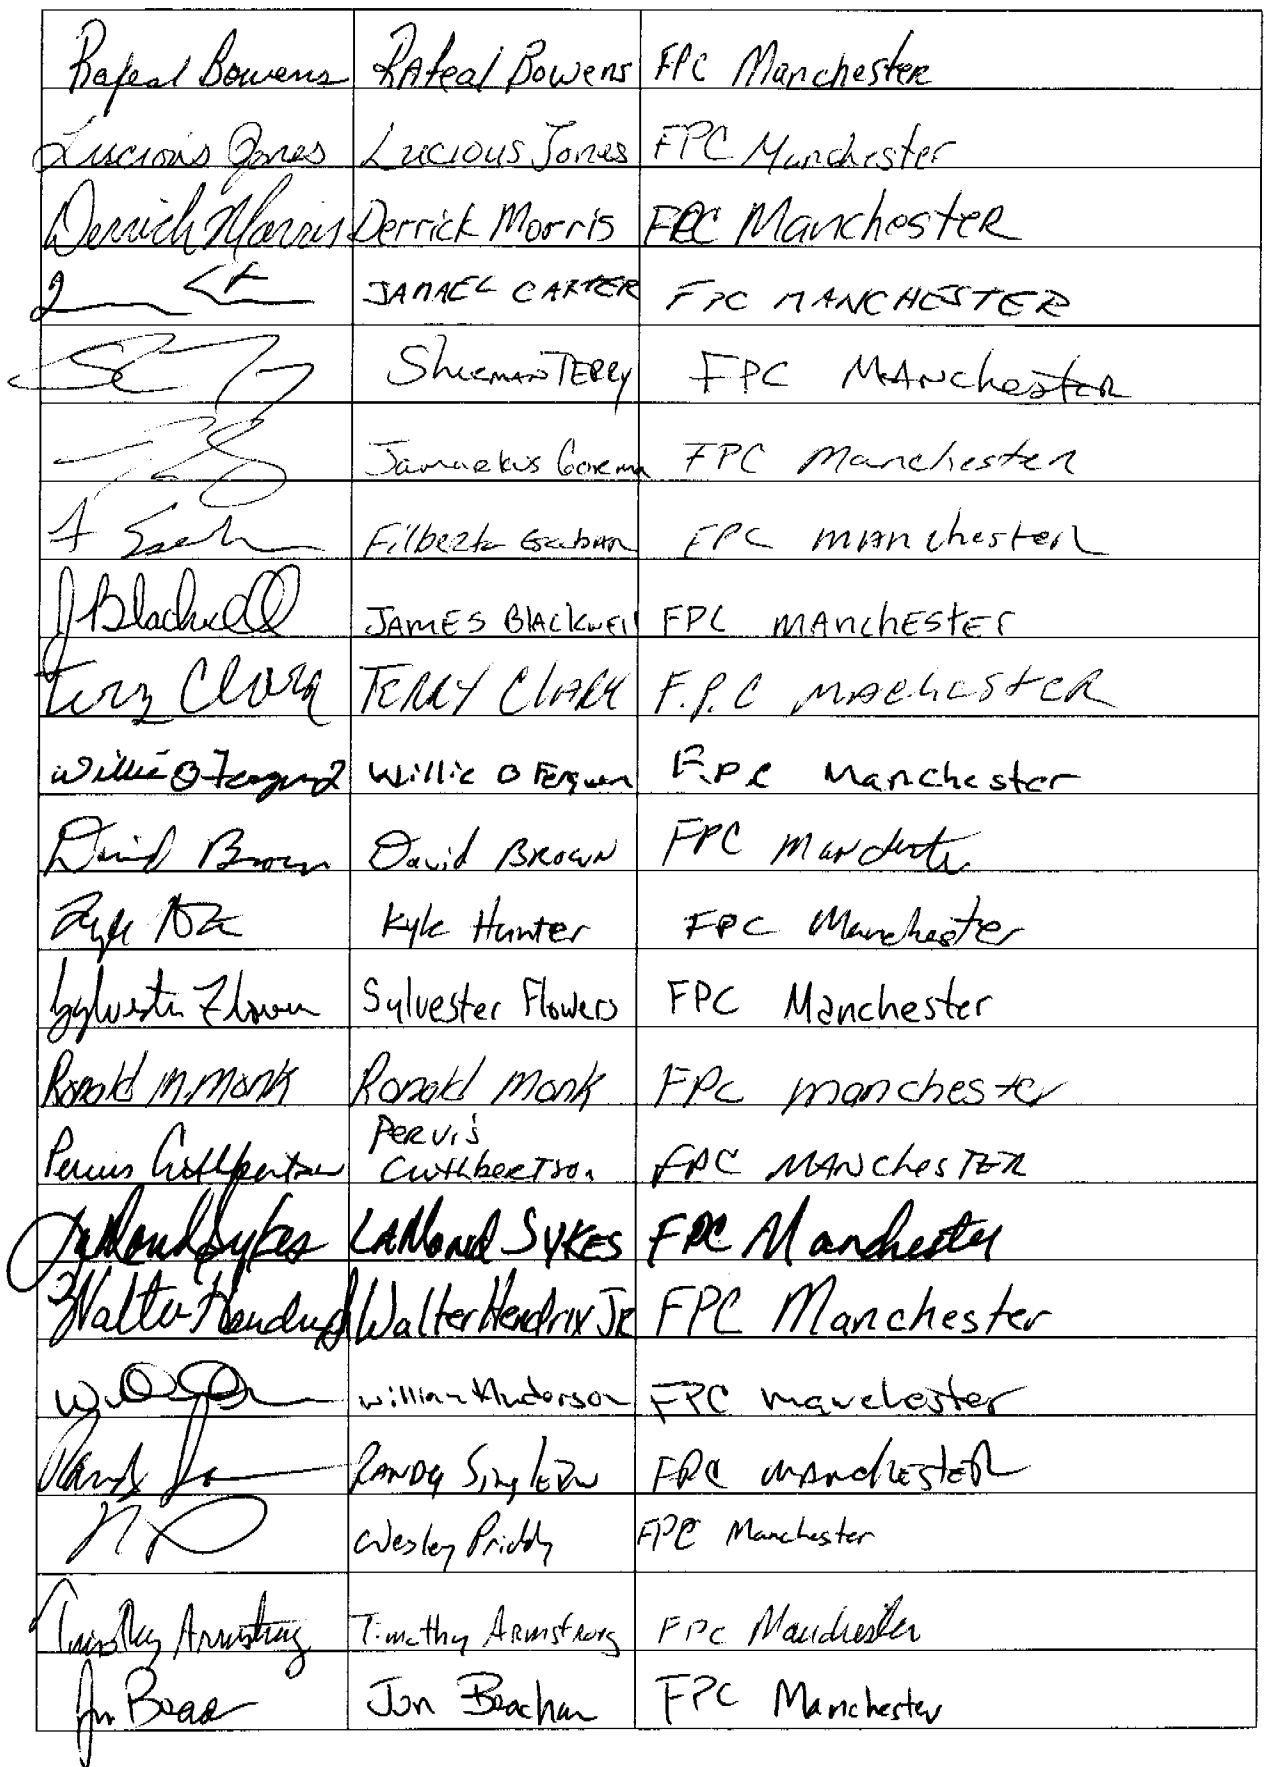 Rafeal Bowens RAfeal Bowens FPC Manchester
Luscious Jones Lucious Jones FPC Manchester
Derrick Morris Derrick Morris FPC Manchester
JAMAEL CARTER FPC MANCHESTER
Sherman TERRY FPC MANchester
Jamarkus FPC Manchester
Filberto FPC MANchester
J Blackwell JAMES BlACkwEll FPC MANchESTEr
Terry Clark TERRY ClARK F.P.C
Willie O Willie O FPC Manchester
David Brown David BROWN FPC
Kyle Kyle Hunter FPC Manchester
Sylvester Flowers Sylvester Flowers FPC Manchester
Ronald M. Monk Ronald Monk FPC manchester
Pervis
Pervis Cuthbertson CuthberTson FPC MANchesTER
LaMond Sykes LAMond SYKES FPC Manchester
Walter Hendrix Walter Hendrix JR FPC Manchester
William Anderson FPC manchester
Randy RANDy SinglETon FPC MANchESTER
Wesley Priddy FPC Manchester
Timothy Armstrong Timothy ARmstrong FPC Manchester
Jon Jon FPC Manchester